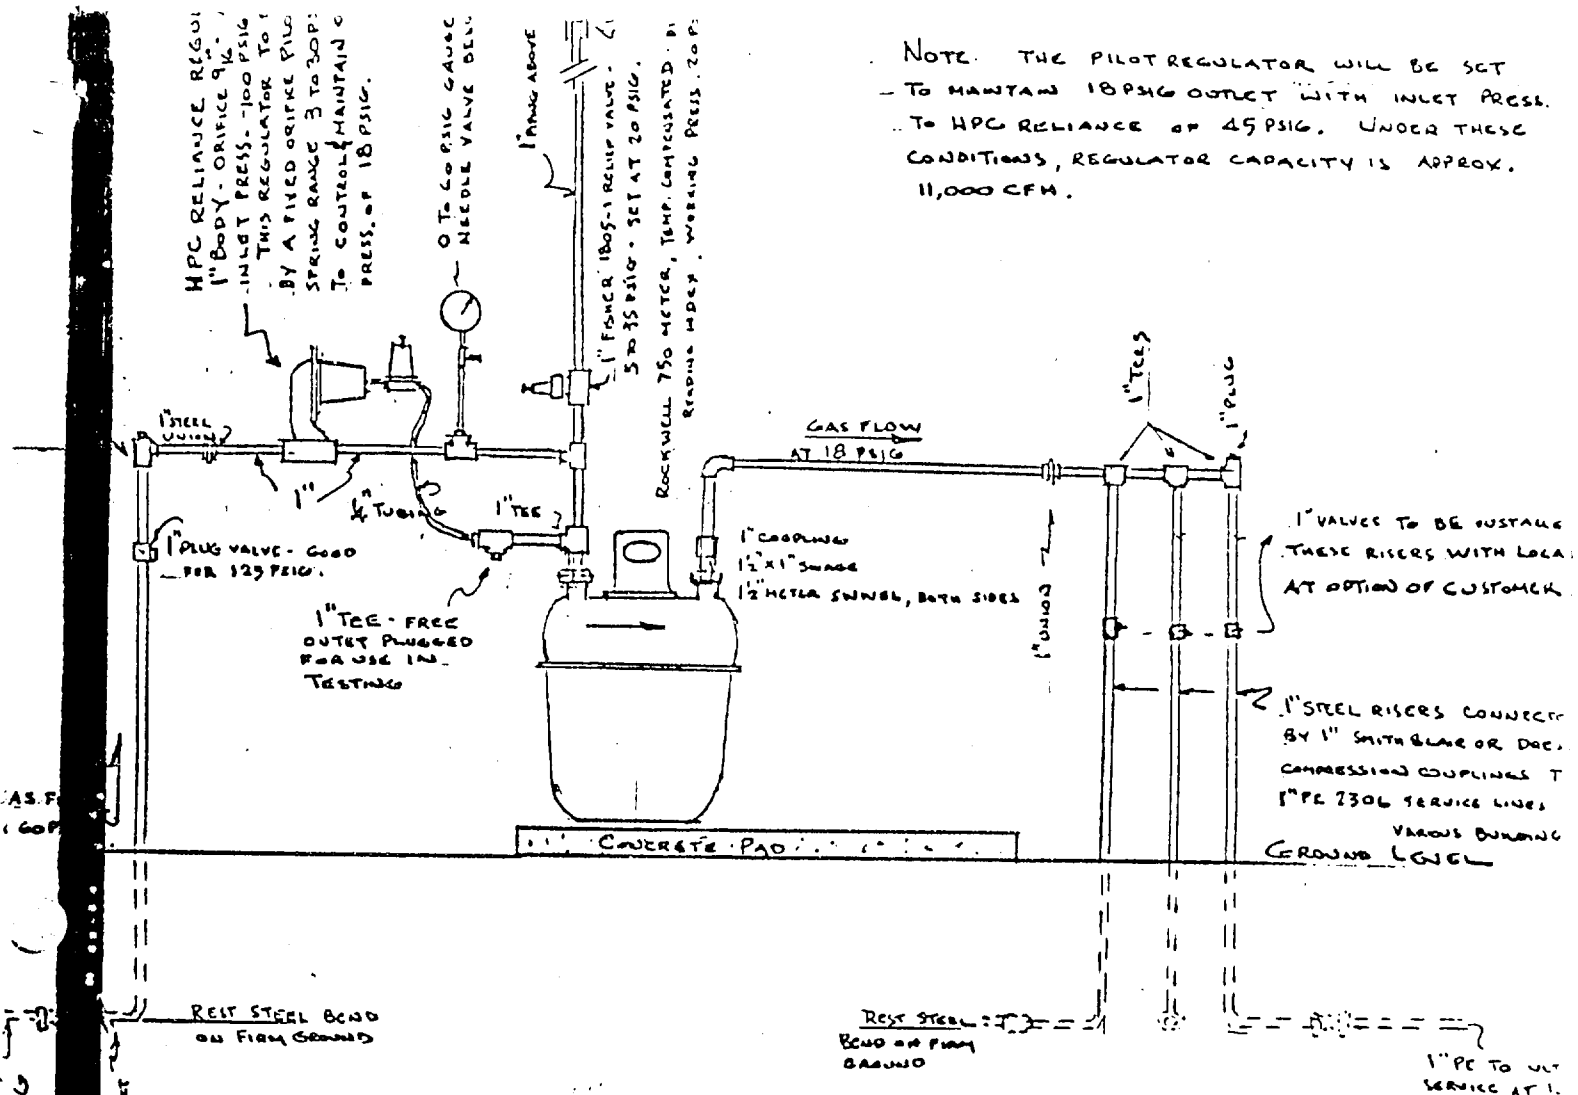 NOTE. THE PILOT REGULATOR WILL BE SET
TO MAINTAIN 18 PSIG OUTLET WITH INLET PRESS.
TO HPC RELIANCE OF 45 PSIG. UNDER THESE
CONDITIONS, REGULATOR CAPACITY IS APPROX.
11,000 CFH.
HPC RELIANCE REGU
1" BODY - ORIFICE 9/16"
INLET PRESS. - 100 PSIG
THIS REGULATOR TO
BY A FIXED ORIFICE PILO
SPRING RANGE 3 TO 30 PS
TO CONTROL & MAINTAIN O
PRESS. OF 18 PSIG.
0 TO 60 PSIG GAUGE
NEEDLE VALVE BELO
1" PIPING ABOVE
1" FISHER 1805-1 RELIEF VALVE -
5 TO 35 PSIG - SET AT 20 PSIG.
ROCKWELL 750 METER, TEMP. COMPENSATED
READING INDEX. WORKING PRESS. 20 P
1" STEEL
UNION
1"
1/4" TUBING
1" TEE
1" PLUG VALVE - GOOD
FOR 125 PSIG.
1" TEE - FREE
OUTLET PLUGGED
FOR USE IN
TESTING
GAS FLOW
AT 18 PSIG
1" COUPLING
1½" x 1" SWAGE
1½" METER SWIVEL, BOTH SIDES
1" UNION
1" TEES
1" PLUG
1" VALVES TO BE INSTALLE
THESE RISERS WITH LOCA
AT OPTION OF CUSTOMER
1" STEEL RISERS CONNECTE
BY 1" SMITH BLAIR OR DRE
COMPRESSION COUPLINGS T
1" PE 2306 SERVICE LINES
VARIOUS BUILDING
GROUND LEVEL
CONCRETE PAD
AS F
60 P
REST STEEL BEND
ON FIRM GROUND
REST STEEL
BEND ON FIRM
GROUND
1" PE TO
SERVICE AT